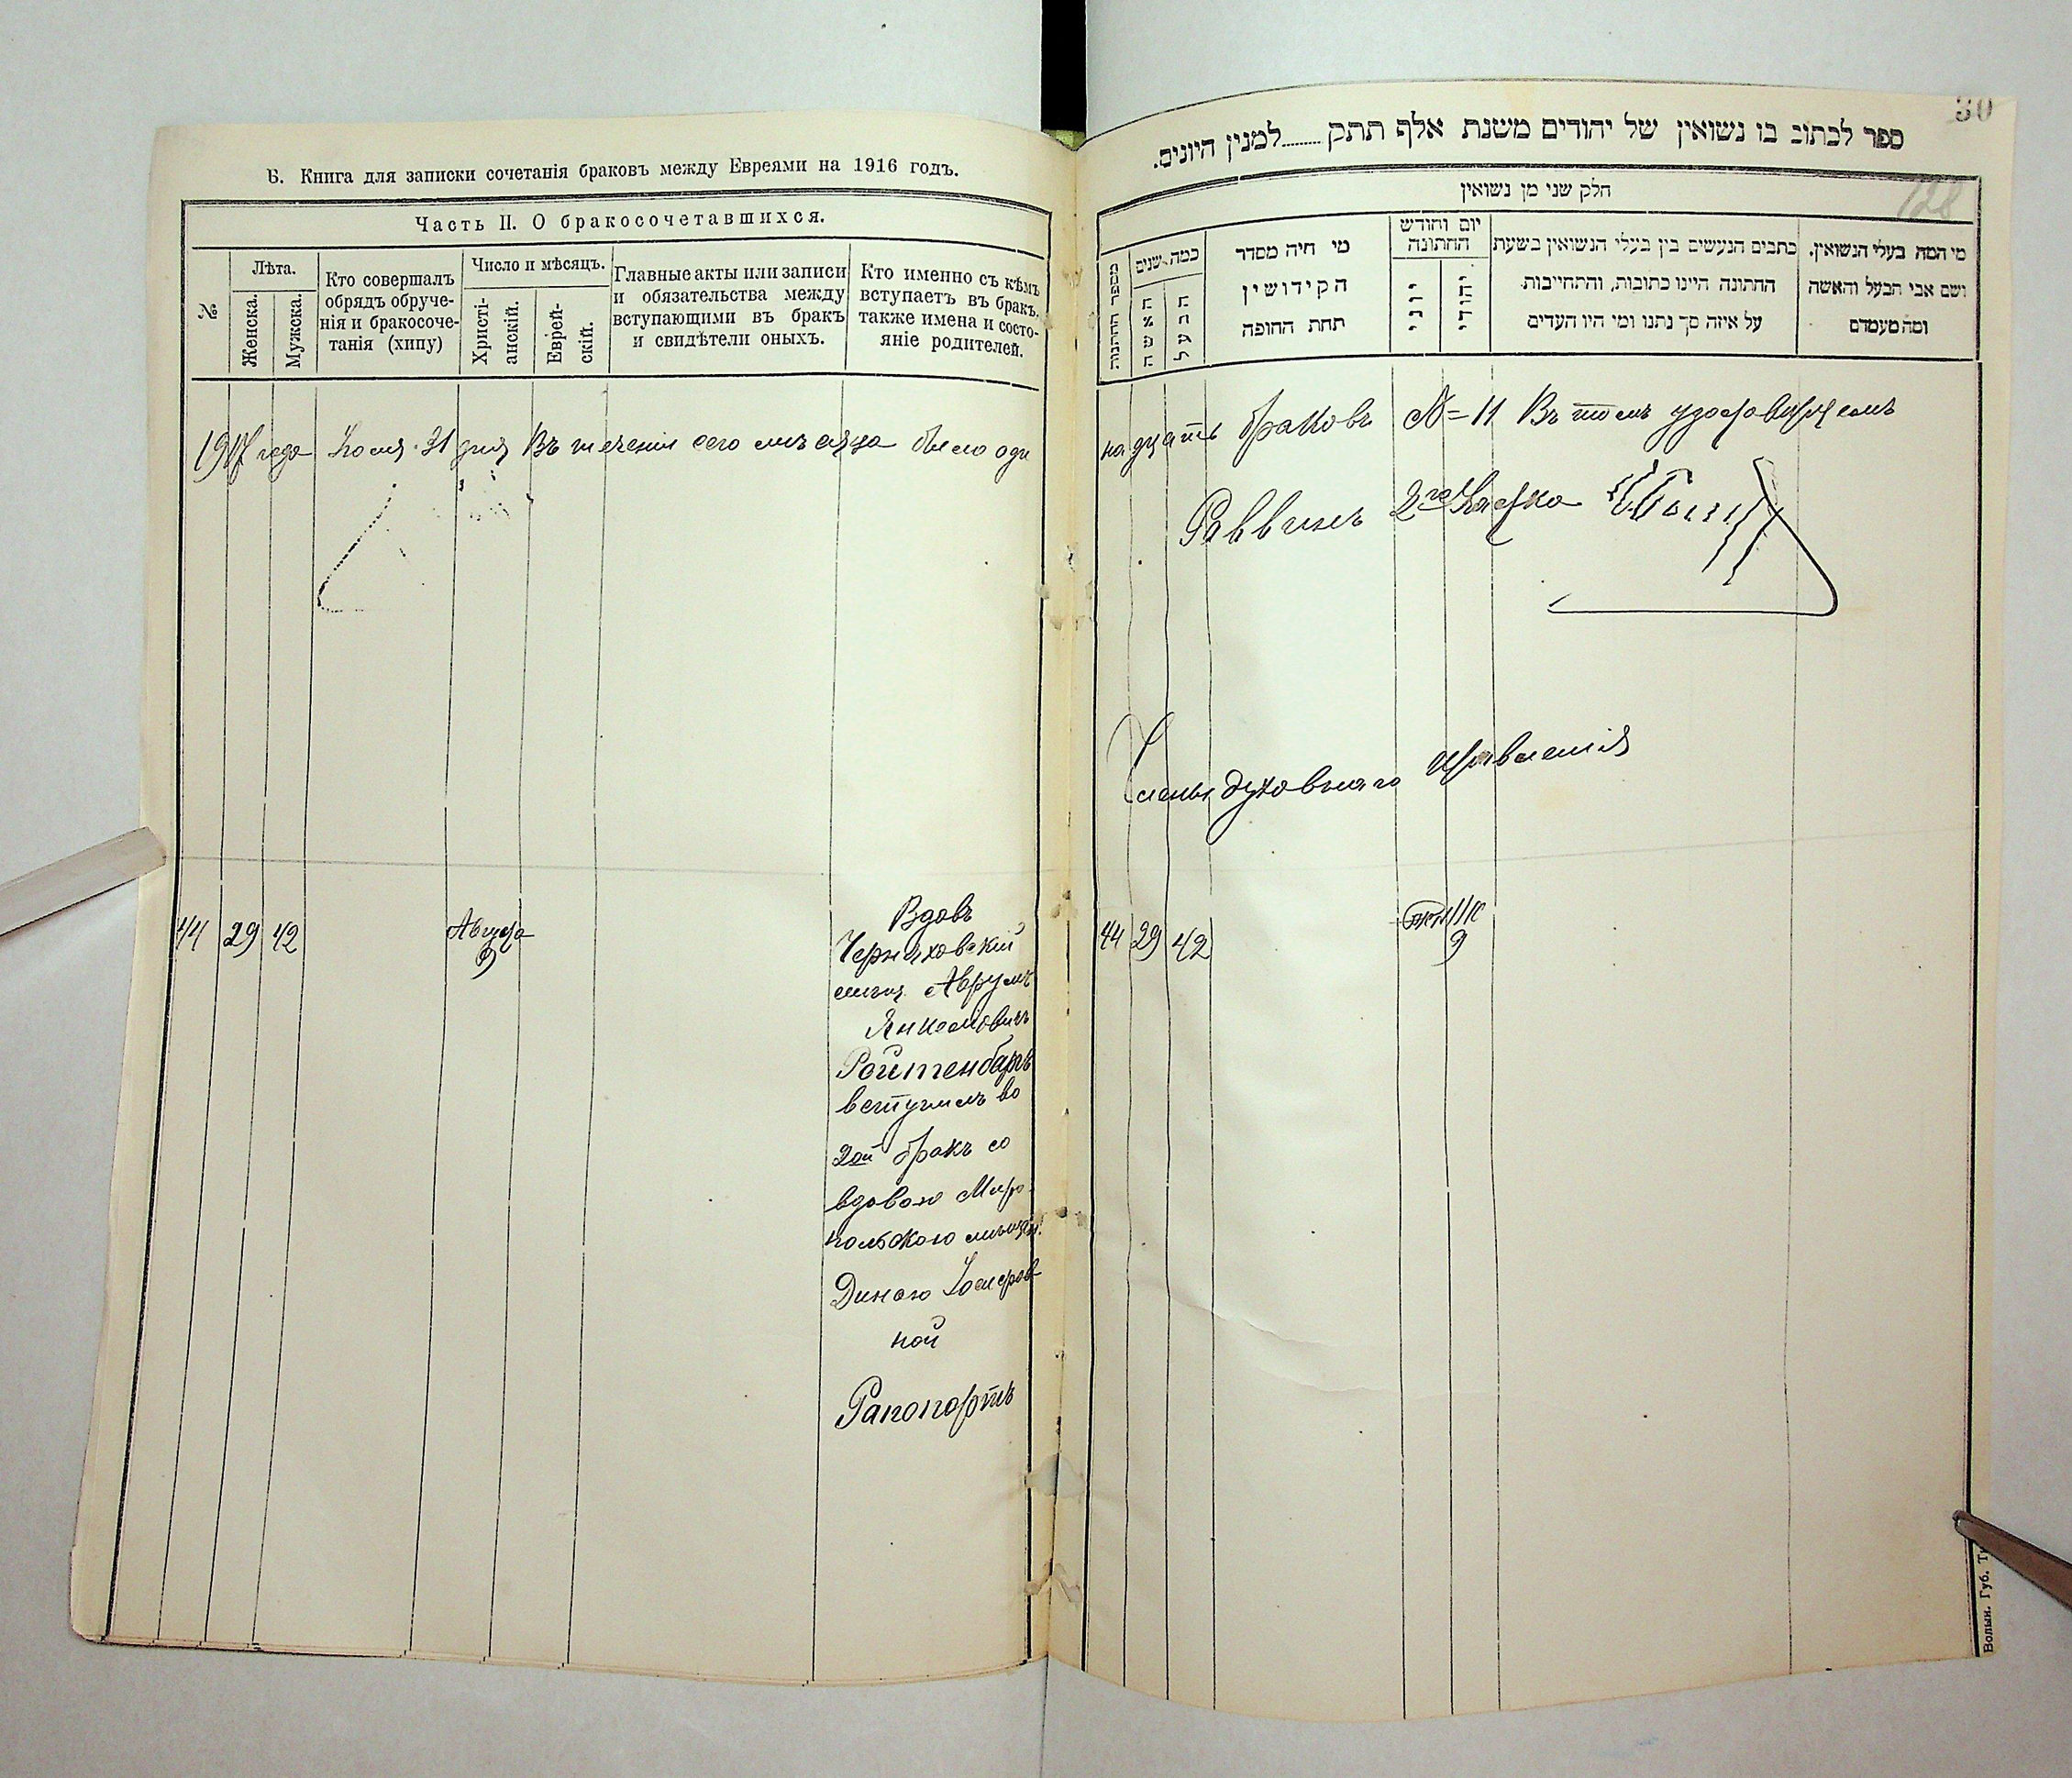 Б. Книга для записки сочетанія браковъ между Евреями на 1916 годъ.
Часть II. О бракосочетавшихся.
№
Лѣта.
Женска.
Мужска.
Кто совершалъ
обрядъ обруче-
нія и бракосоче-
танія (хипу)
Число и мѣсяцъ.
Христі-
анскій.
Еврей-
скій.
Главные акты или записи
и обязательства между
вступающими въ бракъ
и свидѣтели оныхъ.
Кто именно съ кѣмъ
вступаетъ въ бракъ,
также имена и состо-
яніе родителей.
1917 года Іюля 31 дня Въ теченіи сего мѣсяца было оди
44 29 42
Августа
9
Вдовъ
Черняховскій
мѣщ. Аврумъ
Янкелевичъ
Ройтенбаргъ
вступилъ во
2ой бракъ со
вдовою Миро
польскою мѣщан.
Диною Іосифов
ной
Рапопортъ
30
128
ספר לכתוב בו נשואין של יהודים משנת אלף תתק........למנין היונים.
חלק שני מן נשואין
מספר החתונות
כמה שנים
האשה
הבעל
מי חיה מסדר
הקידושין
תחת החופה
יום וחודש
החתונה
יוני
יהודי
כתבים הנעשים בין בעלי הנשואין בשעת
החתונה היינו כתובות, והתחייבות
על איזה סך נתנו ומי היו העדים
מי המה בעלי הנשואין,
ושם אבי הבעל והאשה
ומה מעמדם
надцать браковъ № = 11 Въ томъ удостовѣряемъ
Раввинъ 2го участка
Члены духовнаго правленія
44 29 42
9
Волын. Губ. Ти